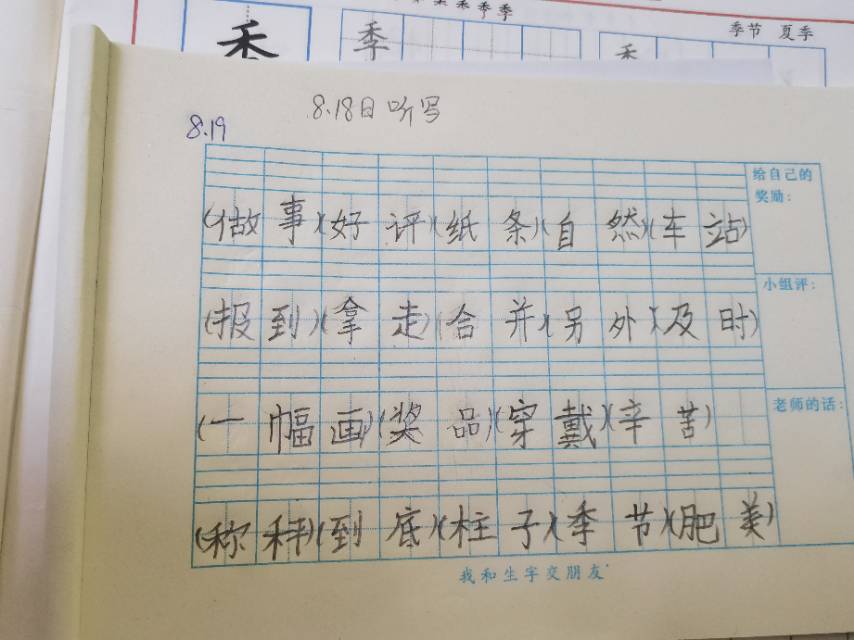 季节 夏季
禾 季 禾
8.18日听写
8.19
给自己的
奖励:
(做事)(好评)(纸条)(自然)(车站)
小组评:
(报到)(拿走)(合并)(另外)(及时)
老师的话:
(一幅画)(奖品)(穿戴)(辛苦)
(称秤)(到底)(柱子)(季节)(肥美)
我和生字交朋友